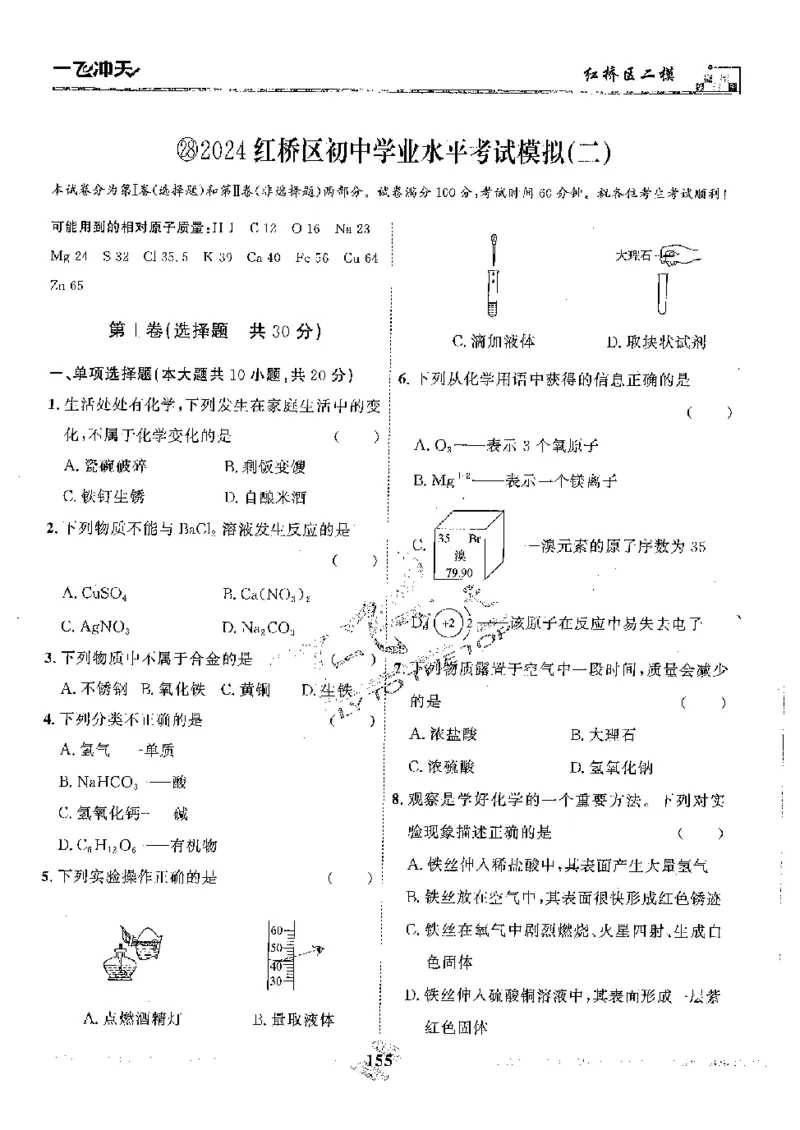 一飞冲天
红桥区二模
㉘2024 红桥区初中学业水平考试模拟(二)
本试卷分为第Ⅰ卷(选择题)和第Ⅱ卷(非选择题)两部分。试卷满分 100 分,考试时间 60 分钟。祝各位考生考试顺利!
可能用到的相对原子质量:H 1 C 12 O 16 Na 23
Mg 24 S 32 Cl 35.5 K 39 Ca 40 Fe 56 Cu 64
Zn 65
第Ⅰ卷(选择题 共 30 分)
一、单项选择题(本大题共 10 小题,共 20 分)
1. 生活处处有化学,下列发生在家庭生活中的变
化,不属于化学变化的是 ( )
A. 瓷碗破碎 B. 剩饭变馊
C. 铁钉生锈 D. 自酿米酒
2. 下列物质不能与 BaCl₂ 溶液发生反应的是
( )
A. CuSO₄ B. Ca(NO₃)₂
C. AgNO₃ D. Na₂CO₃
3. 下列物质中不属于合金的是 ( )
A. 不锈钢 B. 氧化铁 C. 黄铜 D. 生铁
4. 下列分类不正确的是 ( )
A. 氢气 -单质
B. NaHCO₃ ——酸
C. 氢氧化钙- 碱
D. C₆H₁₂O₆ ——有机物
5. 下列实验操作正确的是 ( )
60
50
40
30
A. 点燃酒精灯 B. 量取液体
大理石
C. 滴加液体 D. 取块状试剂
6. 下列从化学用语中获得的信息正确的是
( )
A. O₃——表示 3 个氧原子
B. Mg⁺²——表示一个镁离子
C. 35 Br 溴 79.90 —溴元素的原子序数为 35
D. +2 2 ——该原子在反应中易失去电子
7. 下列物质露置于空气中一段时间,质量会减少
的是 ( )
A. 浓盐酸 B. 大理石
C. 浓硫酸 D. 氢氧化钠
8. 观察是学好化学的一个重要方法。下列对实
验现象描述正确的是 ( )
A. 铁丝伸入稀盐酸中,其表面产生大量氢气
B. 铁丝放在空气中,其表面很快形成红色锈迹
C. 铁丝在氧气中剧烈燃烧、火星四射、生成白
色固体
D. 铁丝伸入硫酸铜溶液中,其表面形成一层紫
红色固体
155